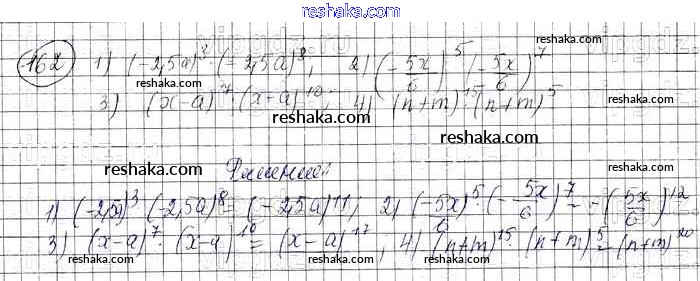 reshaka.com
162 1) (-2,5a)³ · (-2,5a)⁸, 2) (-5x/6)⁵ · (-5x/6)⁷
reshaka.com reshaka.com
3) (x-a)⁷ · (x-a)¹⁰; 4) (n+m)¹⁵ · (n+m)⁵
reshaka.com
reshaka.com
reshaka.com Решение:
reshaka.com reshaka.com
1) (-2,5a)³ · (-2,5a)⁸ = (-2,5a)¹¹, 2) (-5x/6)⁵ · (-5x/6)⁷ = -(5x/6)¹²
3) (x-a)⁷ · (x-a)¹⁰ = (x-a)¹⁷, 4) (n+m)¹⁵ · (n+m)⁵ = (n+m)²⁰
reshaka.com reshaka.com
reshaka.com